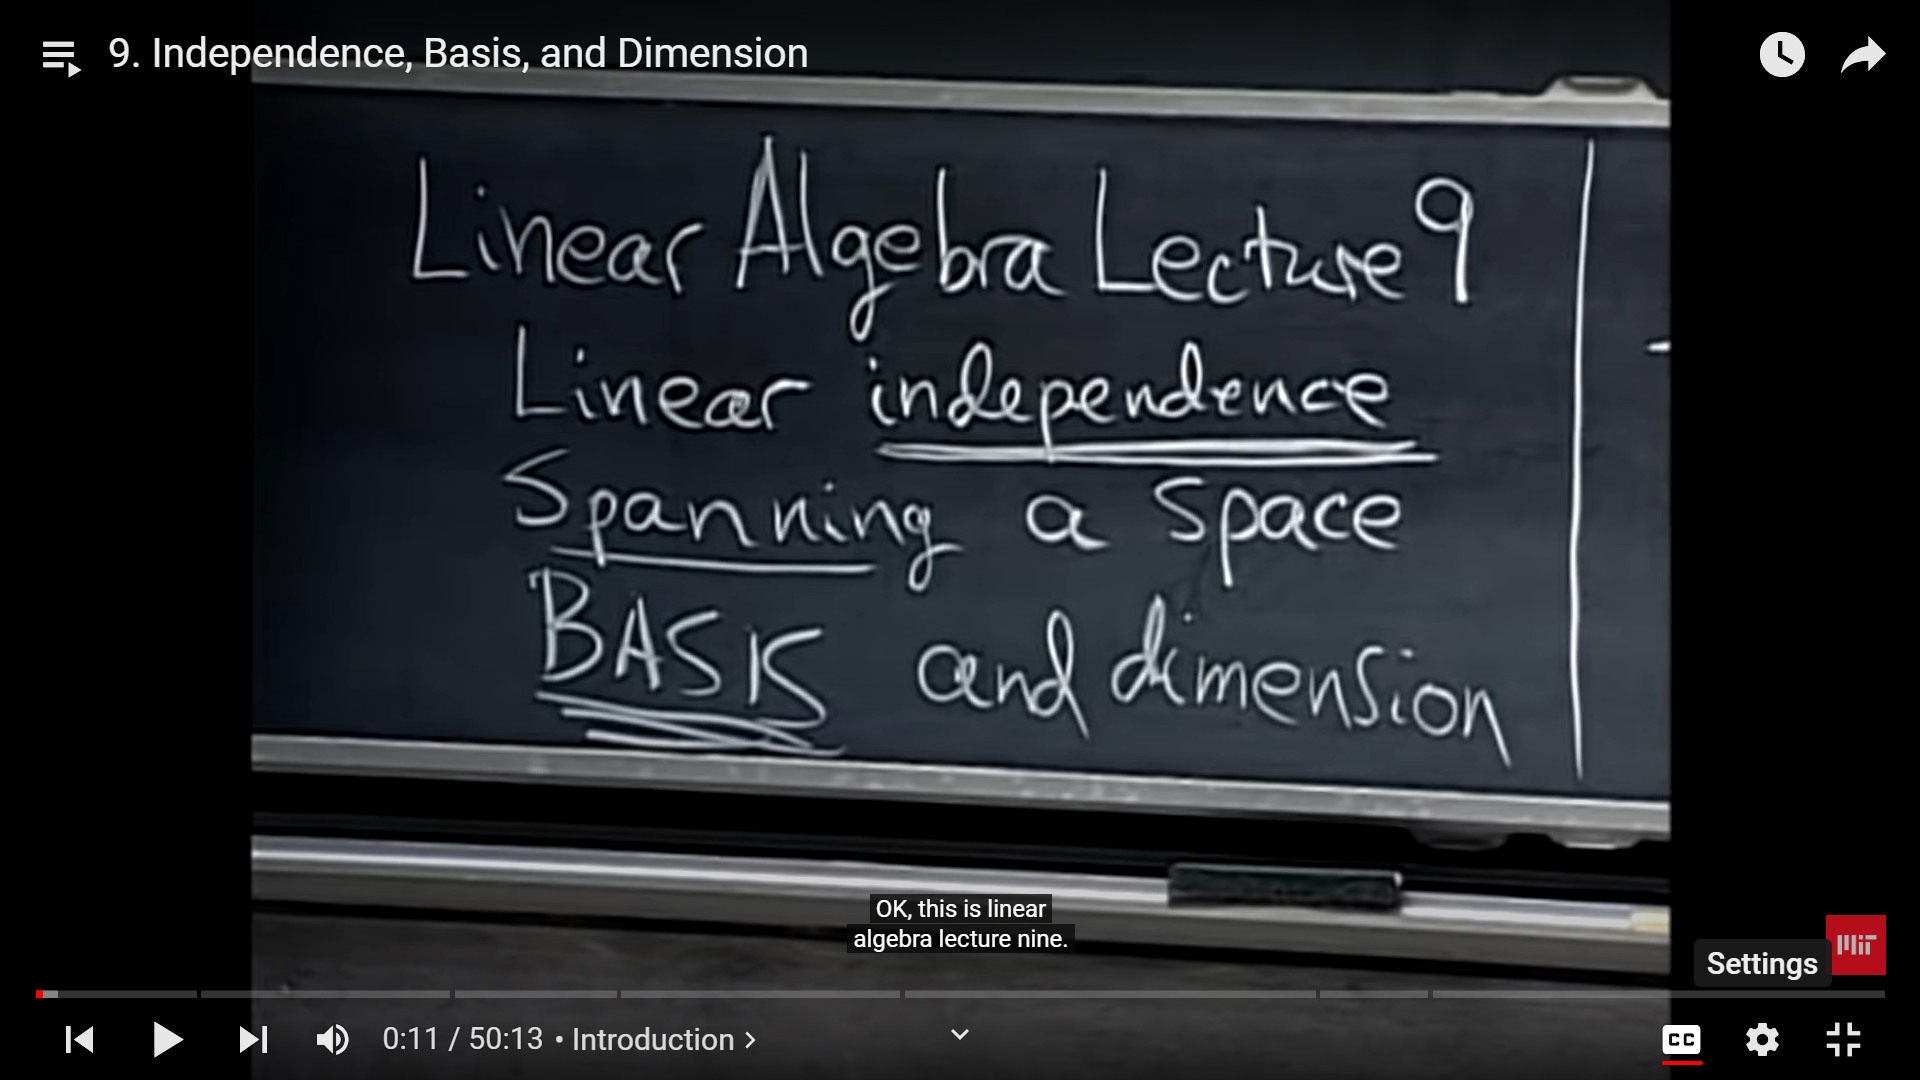 9. Independence, Basis, and Dimension
Linear Algebra Lecture 9
Linear independence
Spanning a space
BASIS and dimension
OK, this is linear
algebra lecture nine.
MIT
Settings
0:11 / 50:13 • Introduction
CC